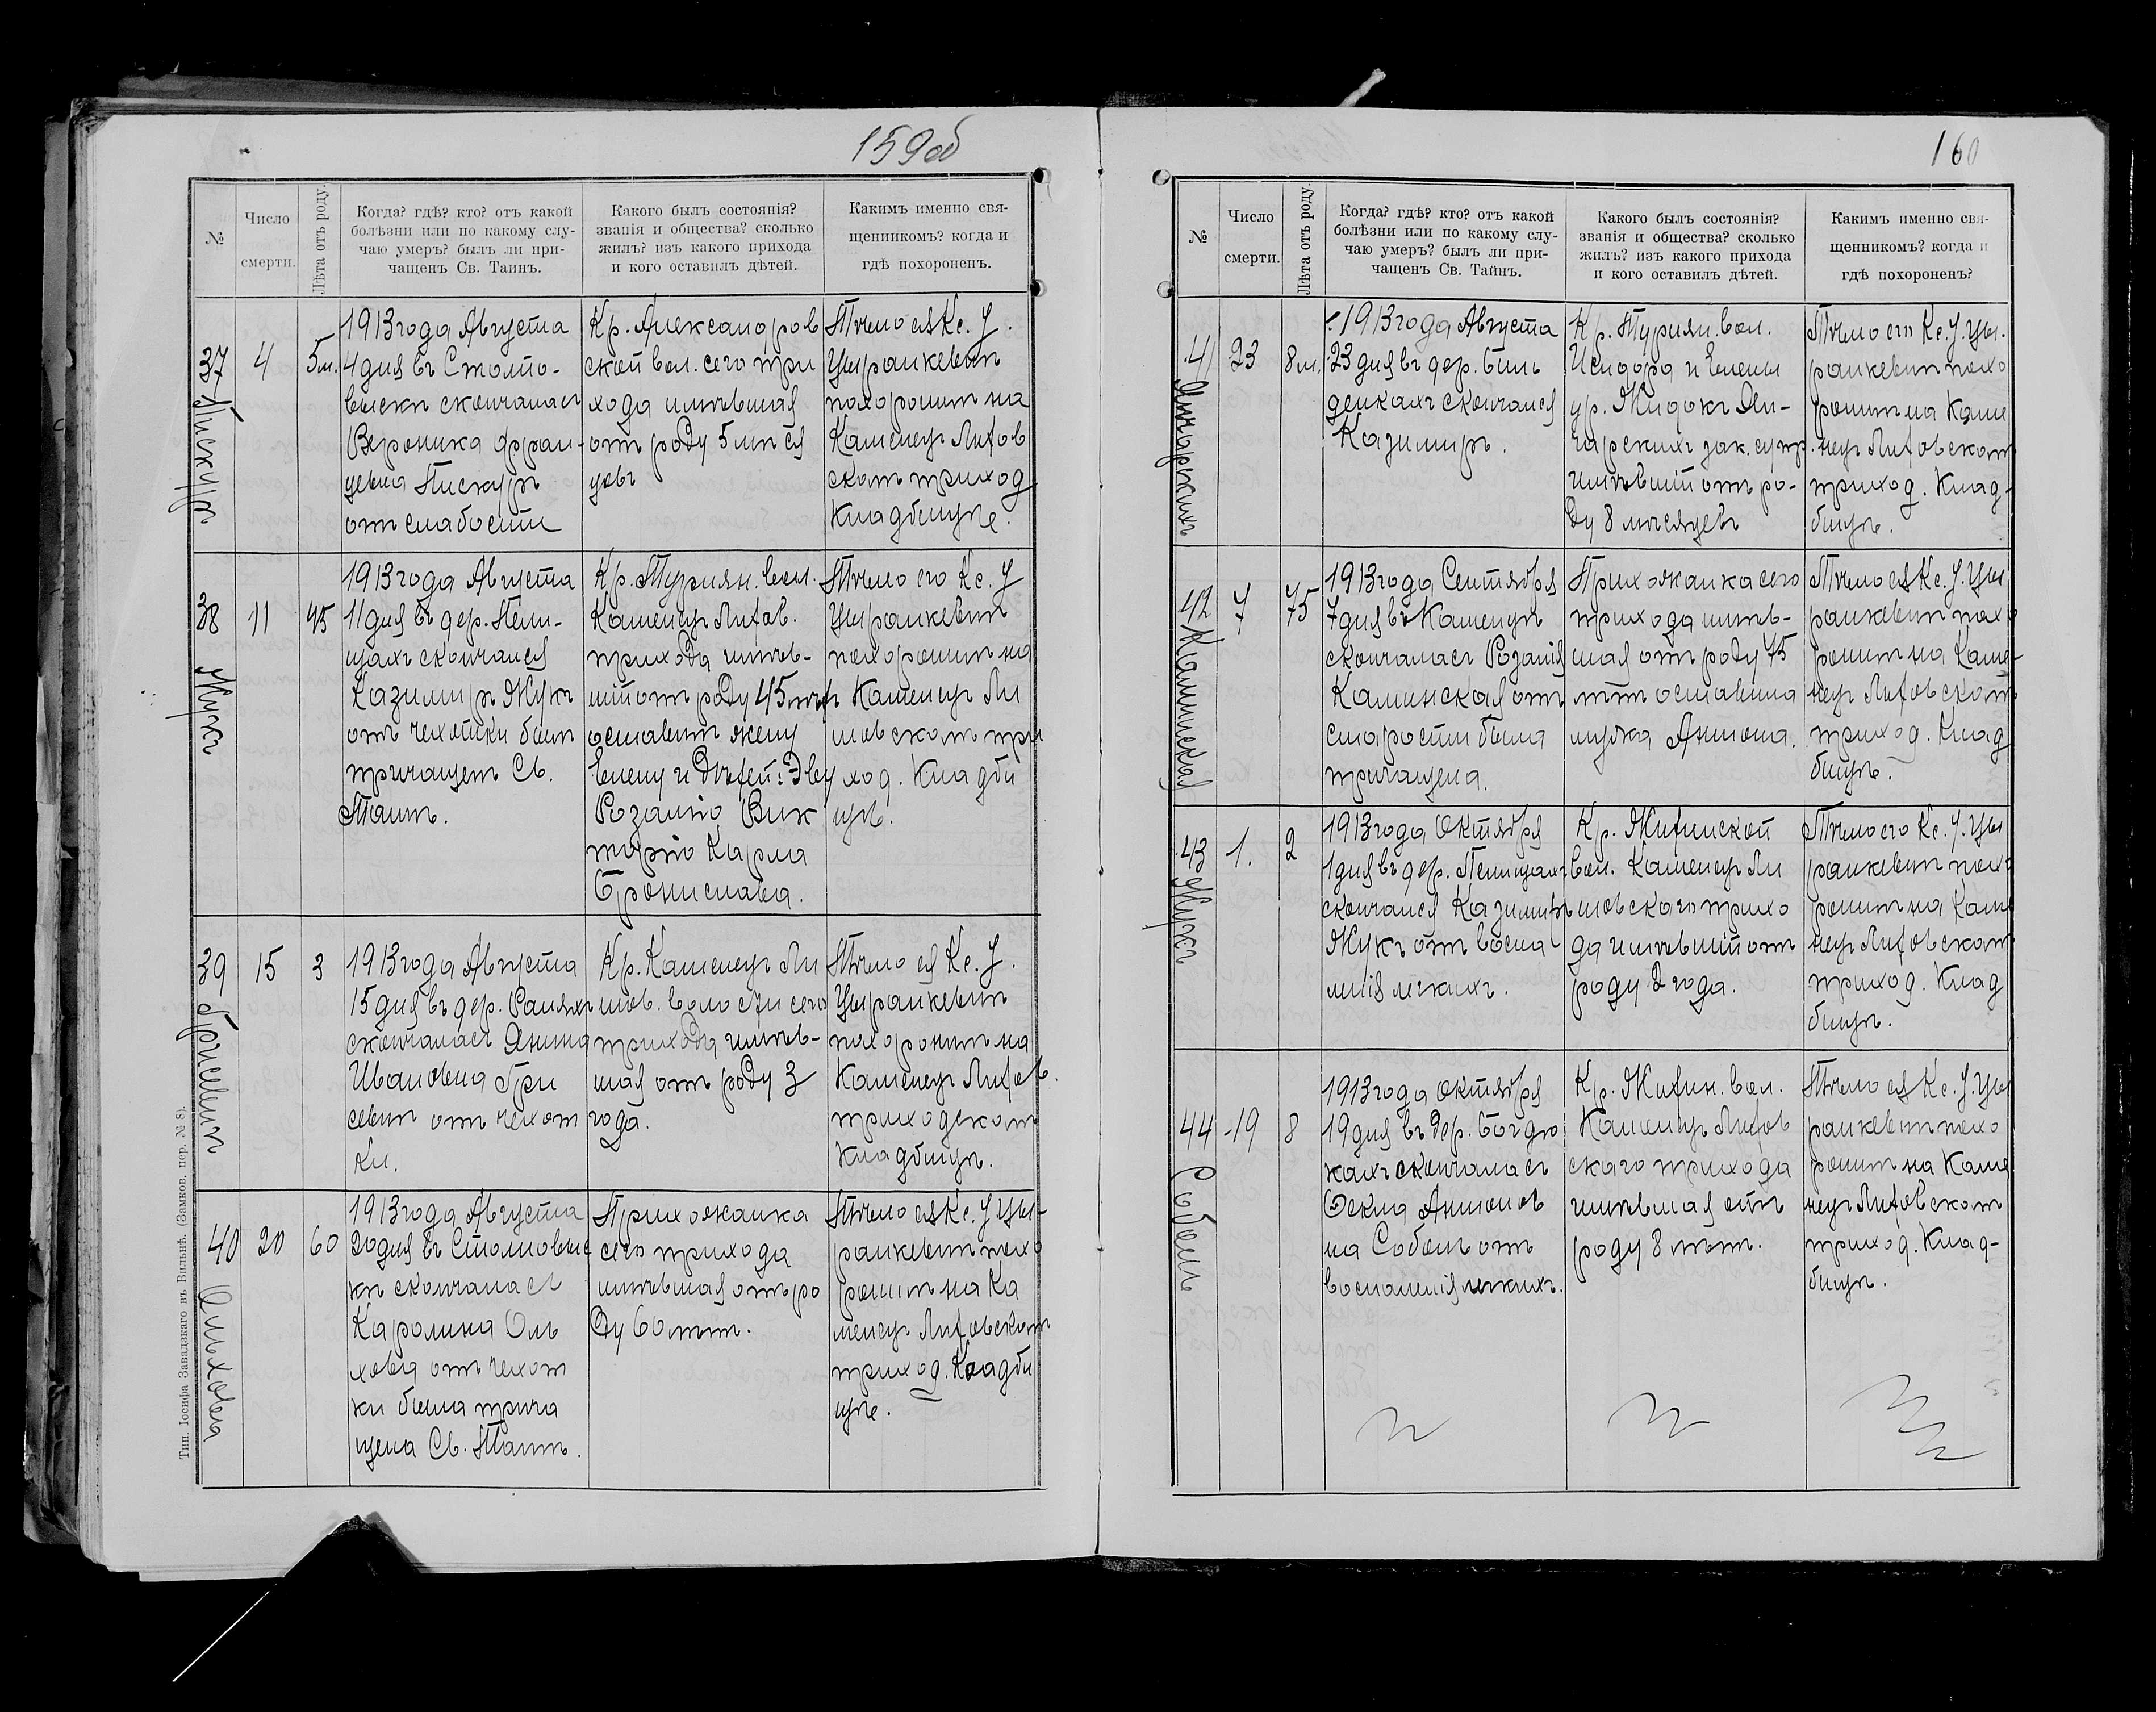 159об
№
Число
смерти.
Лѣта отъ роду.
Когда? гдѣ? кто? отъ какой
болѣзни или по какому слу-
чаю умеръ? былъ ли при-
чащенъ Св. Таинъ.
Какого былъ состоянія?
званія и общества? сколько
жилъ? изъ какого прихода
и кого оставилъ дѣтей.
Какимъ именно свя-
щенникомъ? когда и
гдѣ похороненъ.
37
Пискуръ
4
5м.
1913 года Августа
4 дня въ Столпо-
выскъ скончалась
Вероника Фран-
цевна Пискуръ
отъ слабости
Кр. Александров
ской вол. сего при
хода имѣвшая
отъ роду 5 мѣся
цевъ
Тѣло ея Кс. У.
Цыранкевичъ
похоронилъ на
Каменецъ Литов
скомъ приход
Кладбищѣ.
38
Жукъ
11
45
1913 года Августа
11 дня въ дер. Пели-
щахъ скончался
Казимиръ Жукъ
отъ чехотки былъ
причащенъ Св.
Таинъ.
Кр. Турнян. вол.
Каменецъ Литов.
прихода имѣв-
шій отъ роду 45 лѣтъ
оставилъ жену
Елену и дѣтей: Эву
Розалію Вик
торію Карла
Бронислава.
Тѣло его Кс. У
Цыранкевичъ
похоронилъ на
Каменецъ Ли
товскомъ при
ход. Кладби
щѣ.
39
Грисевичъ
15
3
1913 года Августа
15 дня въ дер. Рамяхъ
скончалась Янина
Ивановна Гри
севич отъ чехот
ки.
Кр. Каменецъ Ли
тов. волости сего
прихода имѣв-
шая отъ роду 3
года.
Тѣло ея Кс. У.
Цыранкевичъ
похоронилъ на
Каменецъ Литов.
приходскомъ
Кладбищѣ.
40
Ольховка
20
60
1913 года Августа
20 дня въ Столповыс
къ скончалась
Каролина Оль
ховка отъ чехот
ки была прича
щена Св. Таинъ.
Прихожанка
сего прихода
имѣвшая отъ ро
ду 60 лѣтъ.
Тѣло ея Кс. У. Цы-
ранкевичъ похо
ронилъ на Ка
менецъ Литовскомъ
приход. Кладби
щѣ.
Тип. Іосифа Завадзкаго въ Вильнѣ. (Замков. пер. № 8).
160
№
Число
смерти.
Лѣта отъ роду.
Когда? гдѣ? кто? отъ какой
болѣзни или по какому слу-
чаю умеръ? былъ ли при-
чащенъ Св. Тайнъ.
Какого былъ состоянія?
званія и общества? сколько
жилъ? изъ какого прихода
и кого оставилъ дѣтей.
Какимъ именно свя-
щенникомъ? когда и
гдѣ похороненъ?
41
Янчарскихъ
23
8м.
1913 года Августа
23 дня въ дер.
скончался
Казимиръ.
Кр. Турнян. вол.
Исидора и Елены
ур. Жидокъ Ян-
чарскихъ зак. супр.
имѣвшій отъ ро-
ду 8 мѣсяцевъ
Тѣло его Кс. У. Цы.
ранкевичъ похо
ронилъ на Каме
нецъ Литовскомъ
приход. Клад-
бищѣ.
42
Каминская
7
75
1913 года Сентября
7 дня въ Каменцѣ
скончалась Розалія
Каминская отъ
старости была
причащена.
Прихожанка сего
прихода имѣв-
шая отъ роду 75
лѣтъ оставила
мужа Антона.
Тѣло ея Кс. У. Цы
ранкевичъ похо
ронилъ на Каме-
нецъ Литовскомъ
приход. Клад
бищѣ.
43
Жукъ
1.
2
1913 года Октября
1 дня въ дер. Пелищахъ
скончался Казимиръ
Жукъ отъ воспа
ленія легкихъ.
Кр. Житинской
вол. Каменецъ Ли
товскаго прихо
да имѣвшій отъ
роду 2 года.
Тѣло его Кс. У. Цы
ранкевичъ похо
ронилъ на Каме
нецъ Литовскомъ
приход. Клад
бищѣ.
44
Соболь
19
8
1913 года Октября
19 дня въ дер. Богдю
кахъ скончалась
Фекла Антонов
на Соболь отъ
воспаленія легкихъ.
Кр. Житин. вол.
Каменецъ Литов
скаго прихода
имѣвшая отъ
роду 8 лѣтъ.
Тѣло ея Кс. У. Цы
ранкевичъ похо
ронилъ на Каме
нецъ Литовскомъ
приход. Клад-
бищѣ.